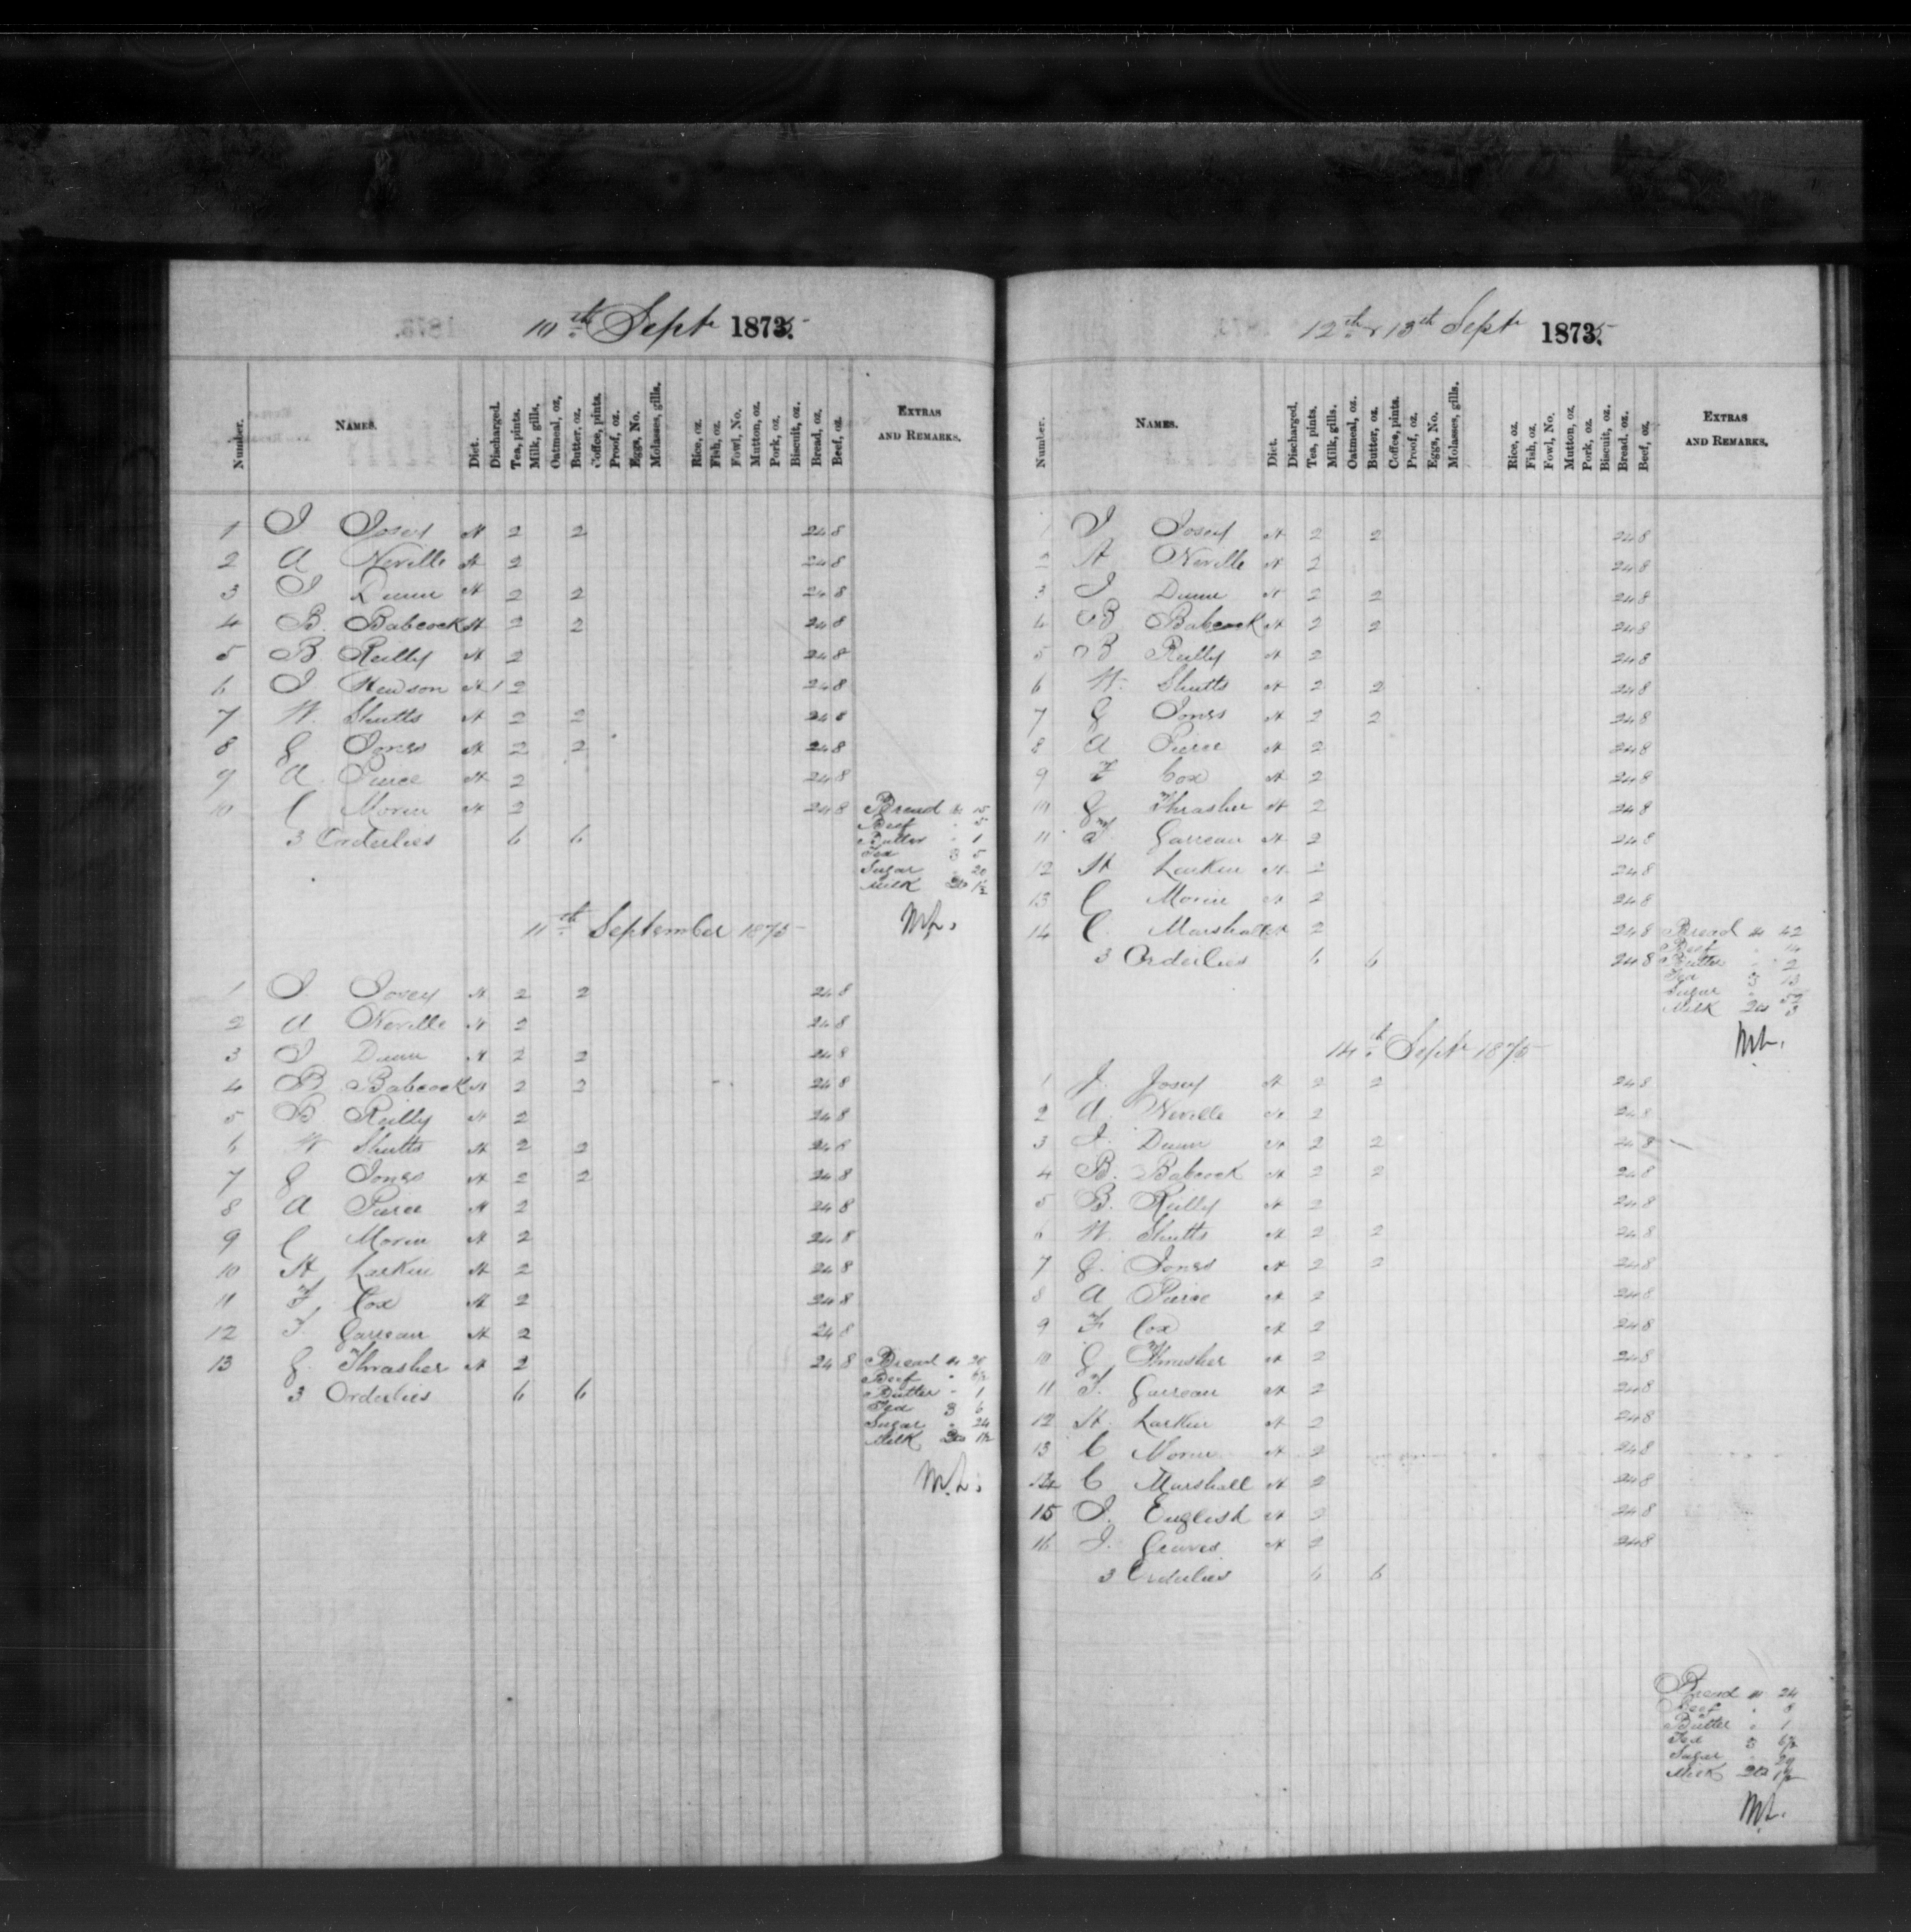 10th Sept 1875
Number. NAMES. Diet. Discharged. Tea, pints. Milk, gills. Oatmeal, oz. Butter, oz. Coffee, pints. Proof, oz. Eggs, No. Molasses, gills. Rice, oz. Fish, oz. Fowl, No. Mutton, oz. Pork, oz. Biscuit, oz. Bread, oz. Beef, oz. EXTRAS AND REMARKS.
1 J Josey H 2 2 24 8
2 A Neville H 2 24 8
3 J Dunn H 2 2 24 8
4 B. Babcock H 2 2 24 8
5 B. Reilly H 2 24 8
6 J Hewson H 1 2 24 8
7 W. Shutts H 2 2 24 8
8 G Jones H 2 2 24 8
9 A Pierce H 2 24 8
10 C Morin H 2 24 8 Bread lbs 15
Beef " 5
3 Orderlies 6 6 Butter " 1
Tea ℥ 5
Sugar " 20
Milk Qts 1½
M.L.
11th September 1875
1 J. Josey H 2 2 24 8
2 A Neville H 2 24 8
3 J Dunn H 2 2 24 8
4 B Babcock H 2 2 24 8
5 B. Reilly H 2 24 8
6 W Shutts H 2 2 24 8
7 G Jones H 2 2 24 8
8 A Pierce H 2 24 8
9 C Morin H 2 24 8
10 H Larkin H 2 24 8
11 F. Cox H 2 24 8
12 F. Garreau H 2 24 8
13 G. Thrasher H 2 24 8 Bread lbs 20
Beef " 6½
3 Orderlies 6 6 Butter " 1
Tea ℥ 6
Sugar " 24
Milk Qts 1½
M.L.
12th & 13th Sept 1875
Number. NAMES. Diet. Discharged. Tea, pints. Milk, gills. Oatmeal, oz. Butter, oz. Coffee, pints. Proof, oz. Eggs, No. Molasses, gills. Rice, oz. Fish, oz. Fowl, No. Mutton, oz. Pork, oz. Biscuit, oz. Bread, oz. Beef, oz. EXTRAS AND REMARKS.
1 J Josey H 2 2 24 8
2 A Neville H 2 24 8
3 J Dunn H 2 2 24 8
4 B Babcock H 2 2 24 8
5 B Reilly H 2 24 8
6 W. Shutts H 2 2 24 8
7 G Jones H 2 2 24 8
8 A Pierce H 2 24 8
9 F Cox H 2 24 8
10 G. Thrasher H 2 24 8
11 F. Garreau H 2 24 8
12 H Larkin H 2 24 8
13 C Morin H 2 24 8
14 C. Marshall H 2 24 8 Bread lbs 42
Beef " 14
3 Orderlies 6 6 24 8 Butter " 2
Tea ℥ 13
Sugar " 52
Milk Qts 3
M.L.
14th Sept 1875
1 J. Josey H 2 2 24 8
2 A. Neville H 2 24 8
3 J. Dunn H 2 2 24 8
4 B. Babcock H 2 2 24 8
5 B. Reilly H 2 24 8
6 W. Shutts H 2 2 24 8
7 G. Jones H 2 2 24 8
8 A Pierce H 2 24 8
9 F. Cox H 2 24 8
10 G. Thrasher H 2 24 8
11 F. Garreau H 2 24 8
12 H. Larkin H 2 24 8
13 C Morin H 2 24 8
14 C Marshall H 2 24 8
15 J. English H 2 24 8
16 J. Graves H 2 24 8
3 Orderlies 6 6
Bread lbs 24
Beef " 8
Butter " 1
Tea ℥
Sugar " 29
Milk Qts 1½
M.L.